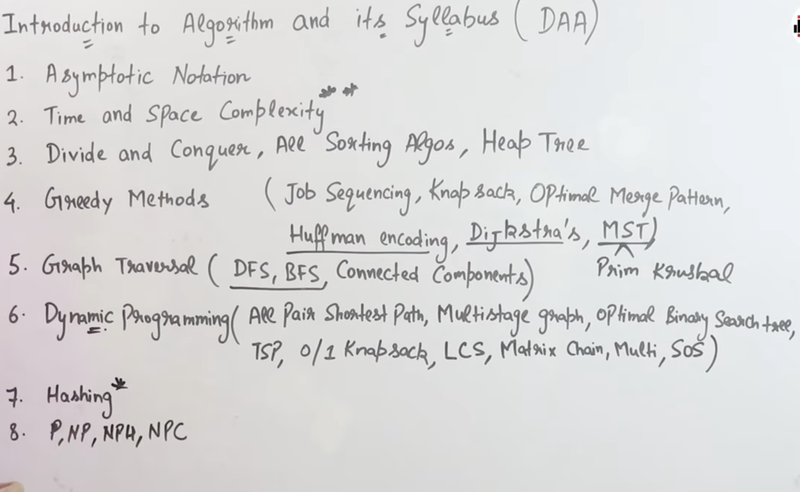 Introduction to Algorithm and its Syllabus (DAA)
1. Asymptotic Notation
2. Time and Space Complexity **
3. Divide and Conquer, All Sorting Algos, Heap Tree
4. Greedy Methods (Job Sequencing, Knapsack, Optimal Merge Pattern,
Huffman encoding, Dijkstra's, MST)
Prim Kruskal
5. Graph Traversal (DFS, BFS, Connected Components)
6. Dynamic Programming (All Pair Shortest Path, Multistage graph, Optimal Binary Search tree,
TSP, 0/1 Knapsack, LCS, Matrix Chain, Multi, SOS)
7. Hashing *
8. P, NP, NPH, NPC